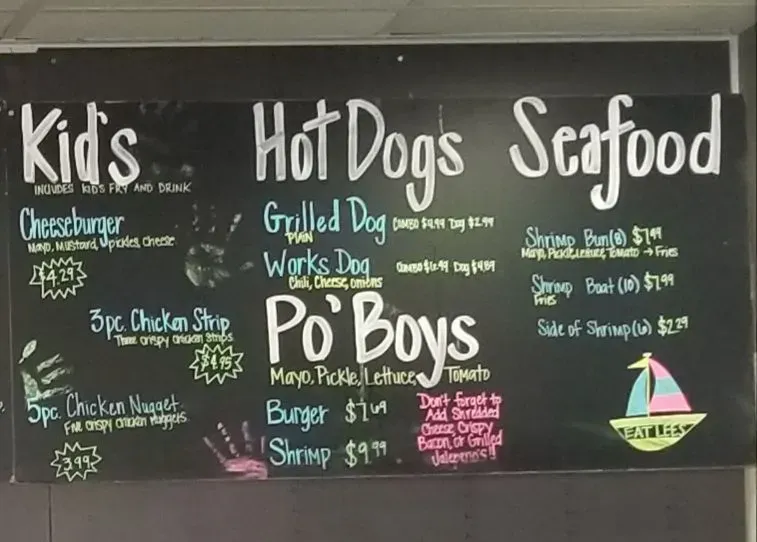 Kid's
INCLUDES KID'S FRY AND DRINK
Cheeseburger
Mayo, Mustard, pickles, cheese
$4.29
3pc. Chicken Strip
Three crispy chicken strips
$4.95
5pc. Chicken Nugget
Five crispy chicken nuggets
3.99
Hot Dogs
Grilled Dog COMBO $4.99 Dog $2.99
PLAIN
Works Dog COMBO Dog $4.89
Chili, Cheese, onions
Po' Boys
Mayo, Pickle, Lettuce, Tomato
Burger $7.69
Shrimp $9.99
Don't forget to
Add Shredded
Cheese, Crispy
Bacon, or Grilled
Jalepeno's!!
Seafood
Shrimp Bun(8) $7.99
Mayo, Pickle, Lettuce, Tomato → Fries
Shrimp Boat (10) $7.99
Fries
Side of Shrimp (6) $2.29
EAT LEES